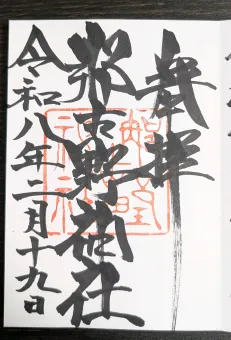 奉拝
野神社
令和八年二月十九日